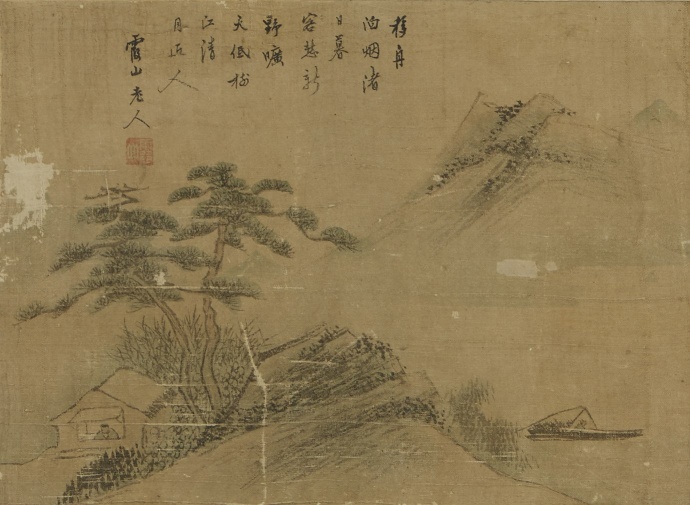 移舟
泊烟渚
日暮
客愁新
野曠
天低樹
江清
月近人
霞山老人